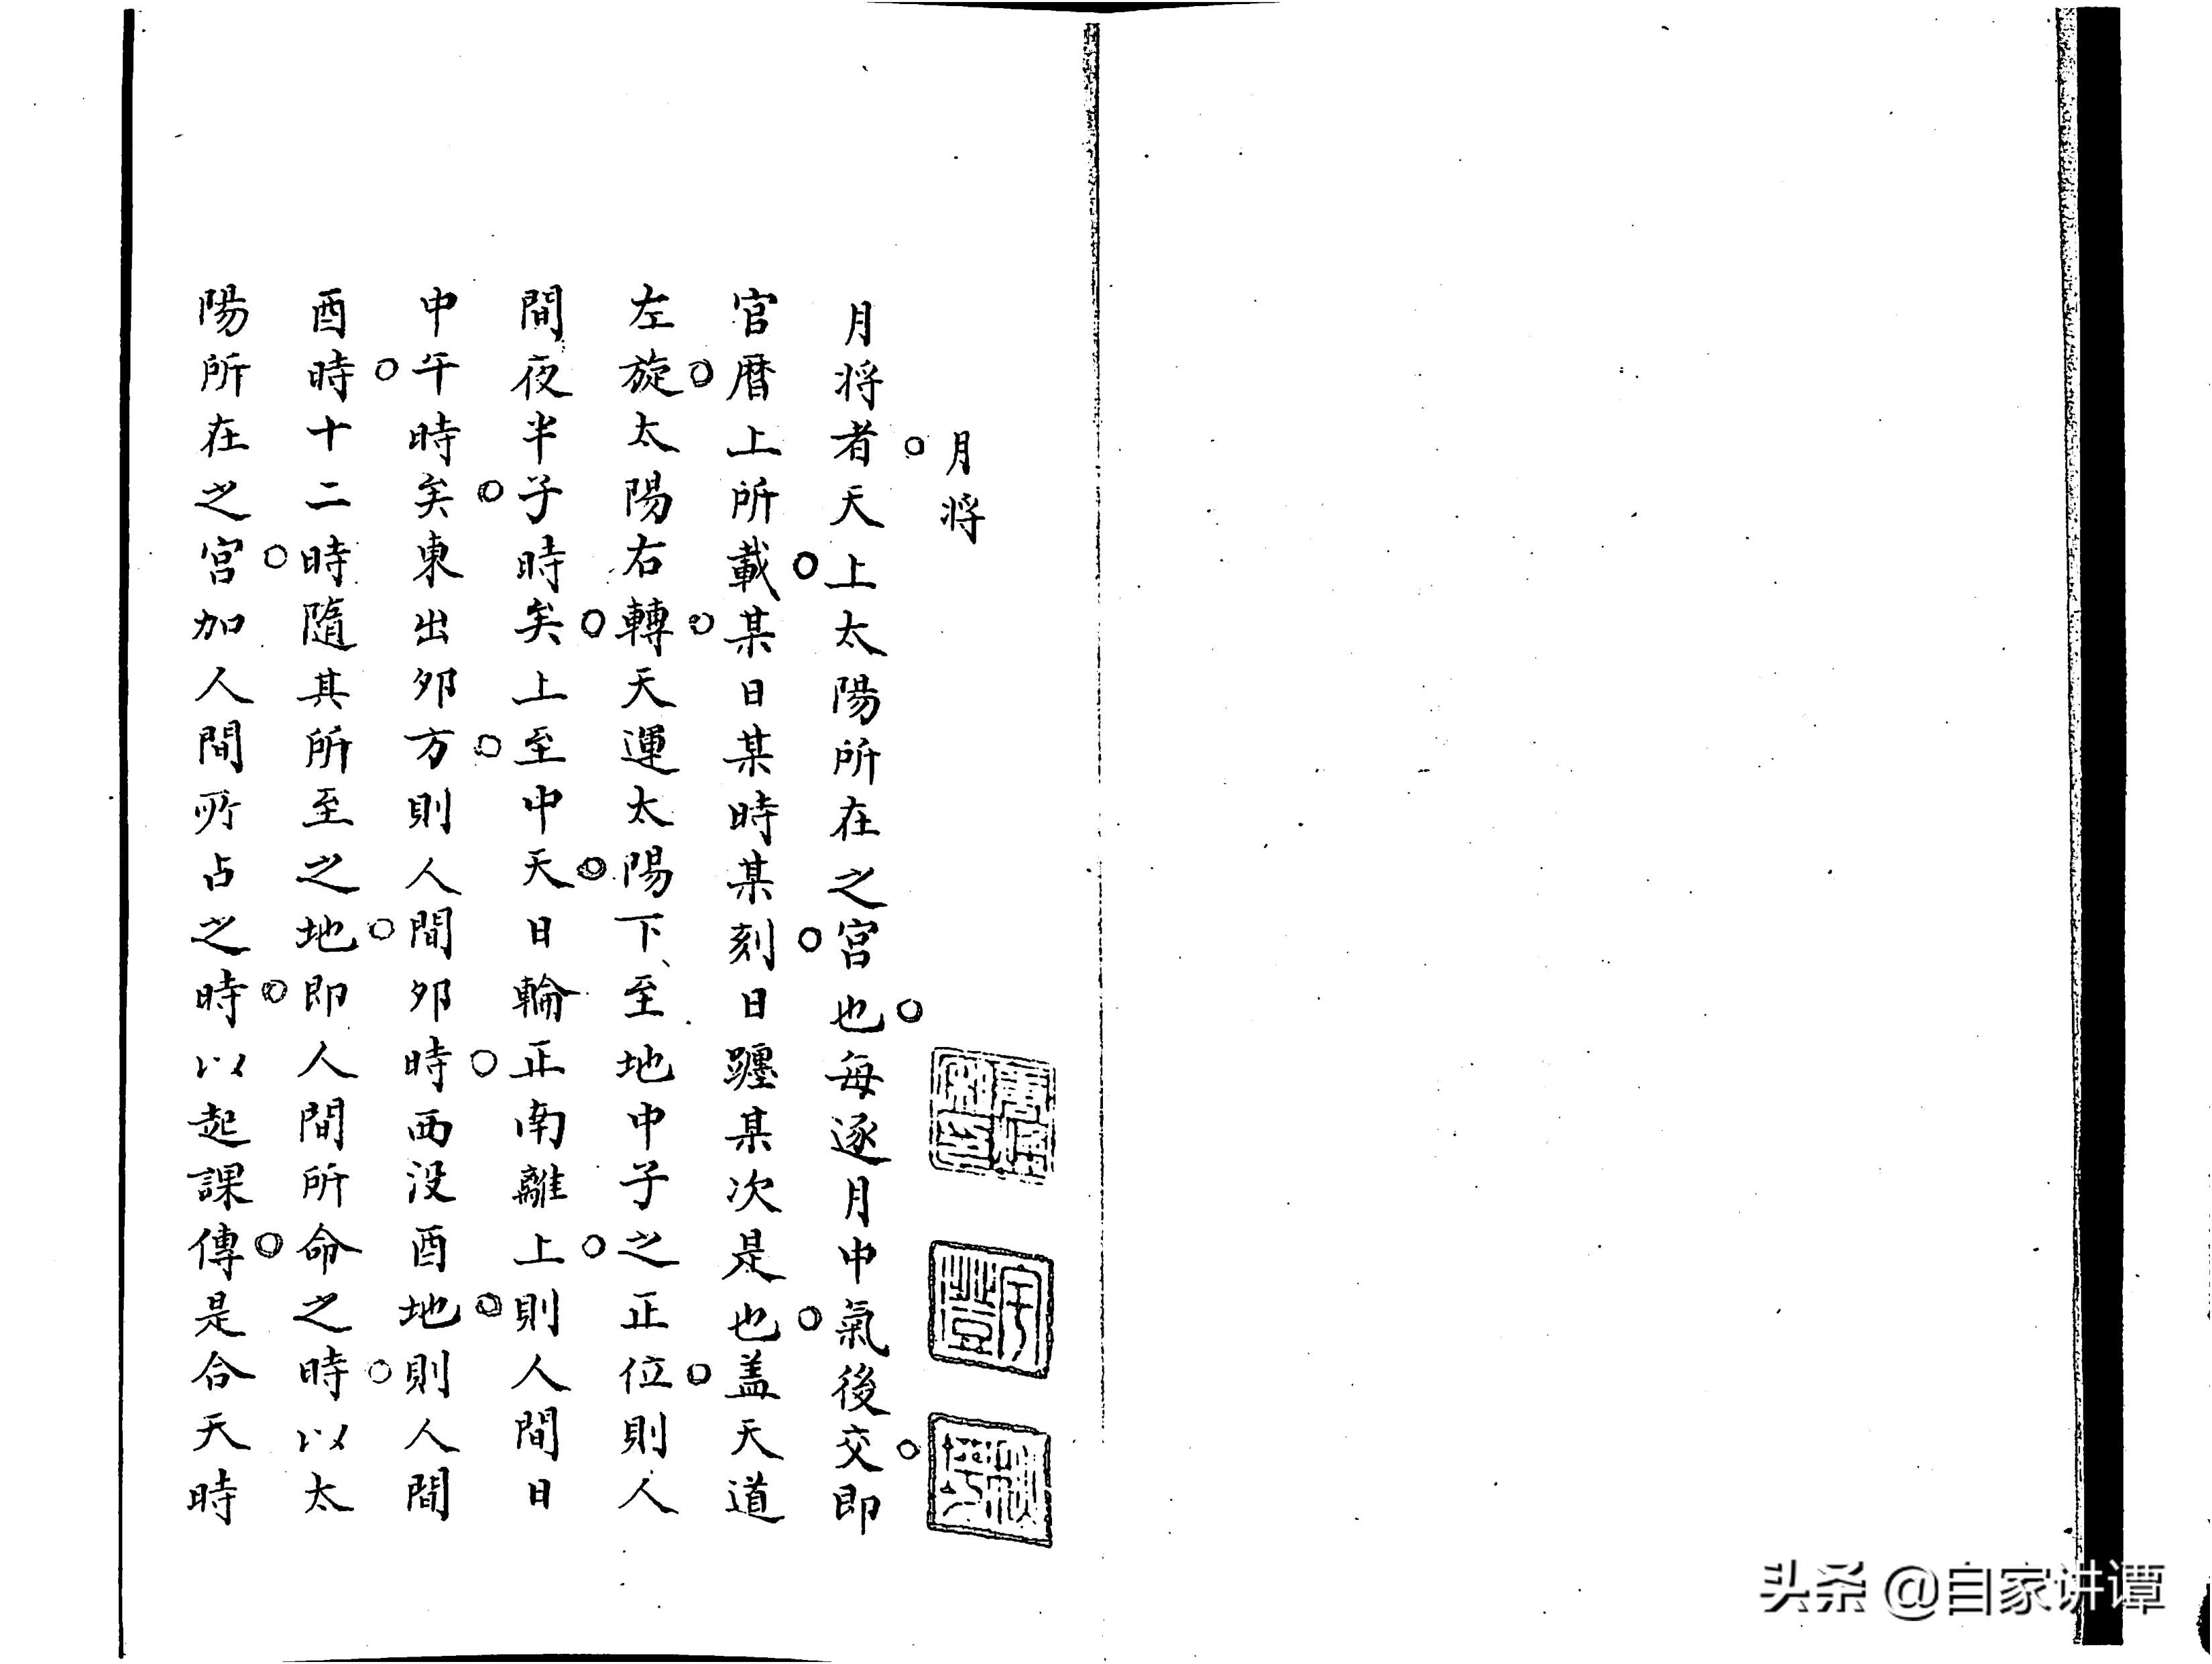 月将
月将者天上太陽所在之宫也每逐月中氣後交即
官暦上所載某日某時某刻日躔某次是也盖天道
左旋太陽右轉天運太陽下至地中子之正位則人
間夜半子時矣上至中天日輪正南離上則人間日
中午時矣東出夘方則人間夘時西没酉地則人間
酉時十二時隨其所至之地即人間所命之時以太
陽所在之宫加人間所占之時以起課傳是合天時
头条 @自家讲谭